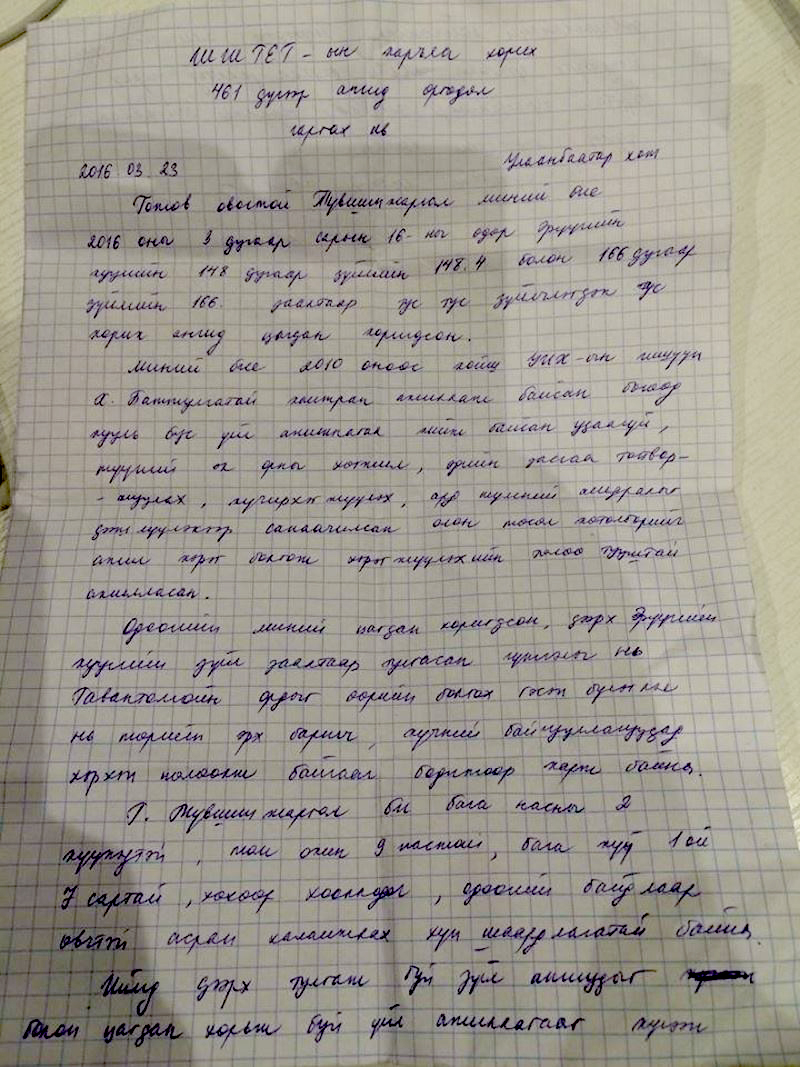 ШШГЕГ-ын харъяа хорих
461 дүгээр ангид өргөдөл
гаргах нь
2016 03 23 Улаанбаатар хот
Гомбов овогтой Түвшинжаргал миний бие
2016 оны 3 дугаар сарын 16-ны өдөр Эрүүгийн
хуулийн 148 дугаар зүйлийн 148.4 болон 166 дугаар
зүйлийн 166. заалтаар тус тус зүйлчлэгдэж тус
хорих ангид цагдан хоригдсон.
Миний бие 2010 оноос хойш УИХ-ын гишүүн
Х. Баттулгатай хамтран ажиллаж байсан бөгөөд
хууль бус үйл ажиллагаа хийж байсан удаагүй,
түүний эх орны хөгжил, эдийн засгаа тогтвор-
-жуулах, хүчирхэгжүүлэх, ард түмний амьдралыг
дээшлүүлэхээр санаачилсан олон төсөл хөтөлбөрийг
ажил хэрэг болгож хэрэгжүүлэхийн төлөө
ажилласан.
Одоогийн миний цагдан хоригдсон, дээрх Эрүүгийн
хуулийн зүйл заалтаар тулгасан гүтгэлэг нь
Тавантолгойн ордыг өөрийн болгох гэсэн бүлэглэл
нь төрийн эрх баригч, хүчний байгууллагуудад
хэрхэн нөлөөлж байгааг бодитоор харж байна.
Г. Түвшинжаргал би бага насны 2
хүүхэдтэй, том охин 9 настай, бага хүү 1 ой
7 сартай, хөхөөр хооллодог, одоогийн байдлаар
өвчтэй асран халамжлах хүн шаардлагатай байна.
Иймд дээрх тулгаж буй зүйл ангиудыг
болон цагдан хорьж буй үйл ажиллагааг хүчээ